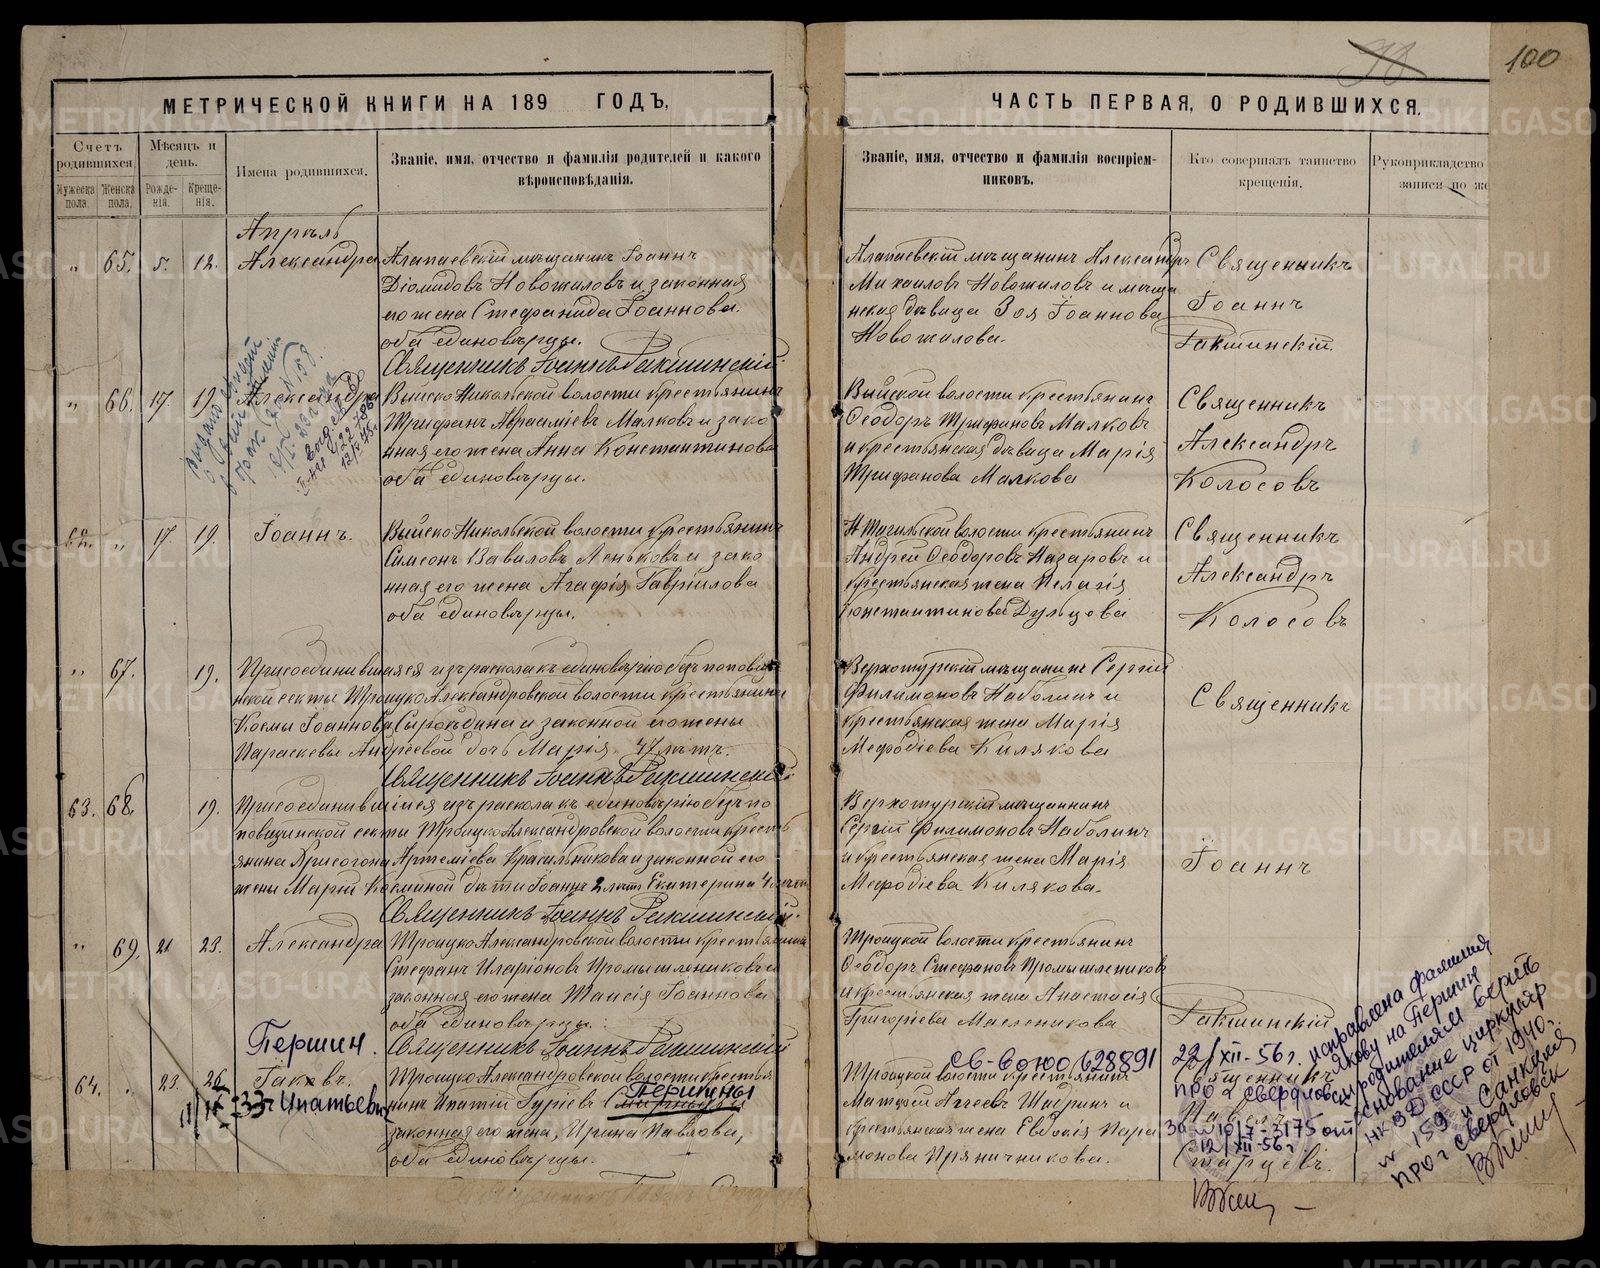 100
МЕТРИЧЕСКОЙ КНИГИ НА 189 ГОДЪ,
ЧАСТЬ ПЕРВАЯ, О РОДИВШИХСЯ.
Счетъ родившихся
Мѣсяцъ и день.
Имена родившихся.
Званіе, имя, отчество и фамилія родителей и какого вѣроисповѣданія.
Мужеска пола.
Женска пола.
Рожде-нія.
Креще-нія.
Званіе, имя, отчество и фамилія воспріем-никовъ.
Кто совершалъ таинство крещенія.
Рукоприкладство
записи по же
Апрѣль
„ 65. 5. 12. Александра
Алапаевскій мѣщанинъ Іоаннъ
Діомидовъ Новожиловъ и законная
его жена Стефанида Іоаннова.
оба единовѣрцы.
Священникъ Іоаннъ Ракшинскій
Алапаевскій мѣщанинъ Александръ
Михаиловъ Новожиловъ и мѣща
нская дѣвица Зоя Іоаннова
Новожилова.
Священникъ
Іоаннъ
Ракшинскій.
„ 66. 17. 19. Александра
Выйско-Никольской волости крестьянинъ
Трифанъ Аврааміевъ Малковъ и зако
нная его жена Анна Константинова
оба единовѣрцы.
Выйской волости крестьянинъ
Ѳеодоръ Трифановъ Малковъ
и крестьянская дѣвица Марія
Трифанова Малкова
Священникъ
Александръ
Колосовъ
62. „ 17. 19. Іоаннъ.
Выйско-Никольской волости крестьянинъ
Симеонъ Вавиловъ Леньковъ и зако
нная его жена Агафія Гавріилова
оба единовѣрцы.
Н Тагильской волости крестьянинъ
Андрей Ѳеодоровъ Назаровъ и
крестьянская жена Пелагія
Константинова Дульцова
Священникъ
Александръ
Колосовъ
„ 67. 19.
Присоединившаяся изъ раскола къ единовѣрію безпоповщи
нской секты Троицко-Александровской волости крестьянина
Космы Іоаннова Сыроѣдина и законной его жены
Параскевы Андреевой дочь Марія 47 лѣтъ.
Священникъ Іоаннъ Ракшинскій
Верхотурскій мѣщанинъ Сергій
Филимоновъ Наболинъ и
крестьянская жена Марія
Меѳодіева Килякова
Священникъ
63. 68. 19.
Присоединившіися изъ раскола къ единовѣрію безпо
повщинской секты Троицко-Александровской волости кресть
янина Хрисогона Артеміева Красильникова и законной его
жены Маріи Косминой дѣти Іоаннъ 2 лѣтъ Екатерина 4 лѣтъ
Священникъ Іоаннъ Ракшинскій.
Верхотурскій мѣщанинъ
Сергій Филимоновъ Наболинъ
и крестьянская жена Марія
Меѳодіева Килякова.
Іоаннъ
„ 69. 21 23. Александра
Троицко-Александровской волости крестьянинъ
Стефанъ Иларіоновъ Промышлениковъ и
законная его жена Таисія Іоаннова
оба единовѣрцы.
Священникъ Іоаннъ Ракшинскій
Троицкой волости крестьянинъ
Ѳеодоръ Стефановъ Промышлениковъ
и крестьянская жена Анастасія
Григоріева Маслениковa
Ракшинскій
Першин.
64. „ 23. 26 Іаковъ.
Ипатьевич
Троицко-Александровской волости крестья
нинъ Ипатій Гуріевъ
Першины
законная его жена, Ирина Павлова,
оба единовѣрцы.
Троицкой волости крестьянинъ
Матѳей Аггеевъ Шадринъ и
крестьянская жена Евдокія Пара
монова Пряничникова.
Священникъ
Павелъ
Старцевъ.
св-во ю 628891
22/XII-56г. исправлена фамилия
Якову на Першин
и родителям верить
основание циркуляр
НКЗД СССР от 1940г.
№ 159 и Санкция
про г свердловск
12/XII-56г.